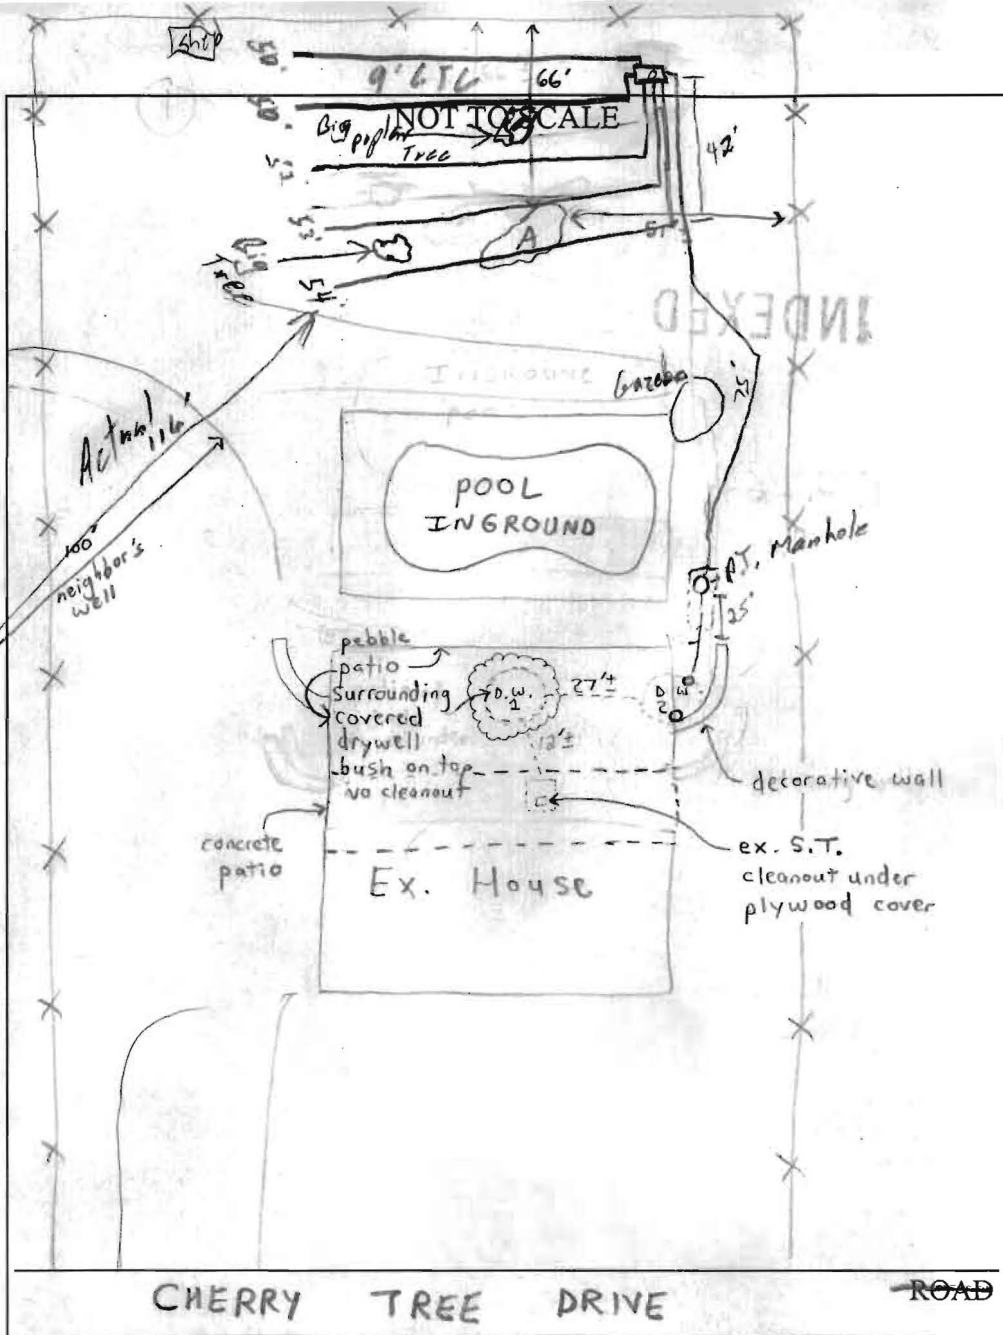 50'
9' CTC
66'
NOT TO SCALE
Big poplar
Tree
42'
52'
53'
54'
Big
A
51'
INDEXED
Gazebo
75'
Actual 116'
100'
neighbor's
well
POOL
INGROUND
P.T. Manhole
25'
pebble
patio
surrounding
covered
drywell
bush on top
no cleanout
D.W.
1
27'±
D.W.
2
12'±
decorative wall
concrete
patio
ex. S.T.
cleanout under
plywood cover
Ex. House
CHERRY TREE DRIVE
ROAD